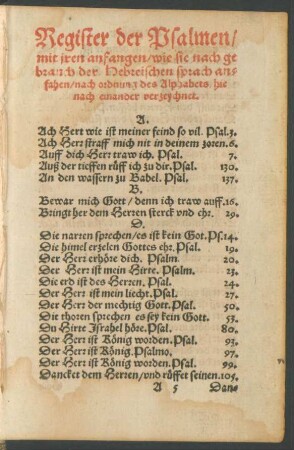 Register der Psalmen/
mit jren anfangen/wie sie nach ge
brauch der Hebreischen sprach an-
fahen/nach ordnung des Alphabets/hie
nach einander verzeychnet.
A.
Ach Hert wie ist meiner feind so vil. Psal.3.
Ach Herr straff mich nit in deinem zoren.6.
Auff dich Herr traw ich. Psal. 7.
Auß der tieffen rüff ich zu dir. Psal. 130.
An den wassern zu Babel. Psal. 137.
B.
Bewar mich Gott/denn ich traw auff.16.
Bringt her dem Herren sterck vnd ehr. 29.
D.
Die narren sprechen/es ist kein Got.Ps.14.
Die himel erzelen Gottes ehr.Psal. 19.
Der Herr erhöre dich. Psalm. 20.
Der Herr ist mein Hirte. Psalm. 23.
Die erd ist des Herren. Psal. 24.
Der Herr ist mein liecht.Psal. 27.
Der Herr der mechtig Gott.Psal. 50.
Die thoren sprechen es sey kein Gott. 53.
Du Hirte Israhel höre.Psal. 80.
Der Herr ist König worden.Psal. 93.
Der Herr ist König.Psalmo. 97.
Der Herr ist König worden.Psal. 99.
Dancket dem Herren/vnd rüffet seinen.105.
A 5 Danc